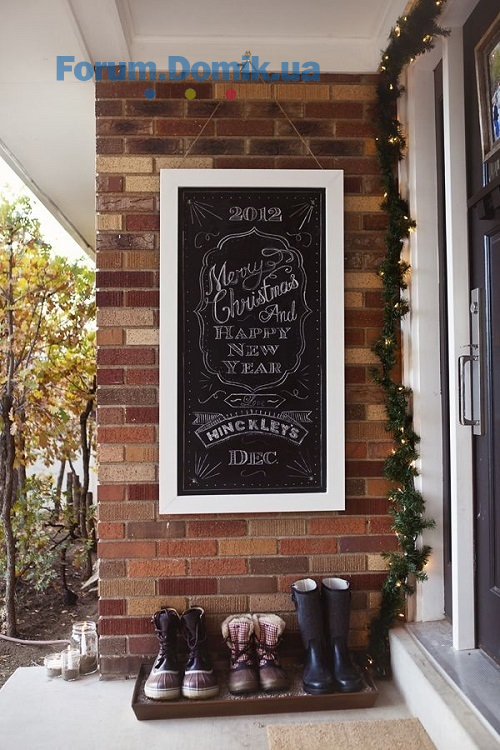 Forum.Domik.ua
2012
Merry
Christmas
And
HAPPY
NEW
YEAR
Love
HINCKLEY'S
DEC.